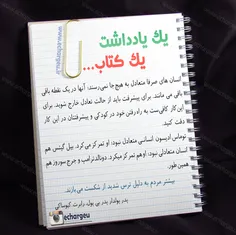 یک یادداشت
یک کتاب...
انسان های صرفا متعادل به هیچ جا نمی رسند؛ آنها در یک نقطه باقی
می مانند. برای پیشرفت باید از حالت تعادل خارج شوید. برای
این کار کافی‌ست به راه رفتن خود در کودکی و پیشرفتتان در این کار
دقت کنید.
توماس ادیسون انسانی متعادل نبود؛ او تمرکز می کرد. بیل گیتس هم
انسان متعادلی نبود؛ او هم تمرکز میکرد. دونالد ترامپ و جرج سوروز هم
همین طور.
بیشتر مردم به دلیل ترس شدید از شکست می بازند.
پدر پولدار پدر بی پول، رابرت کیوساکی
echargeu